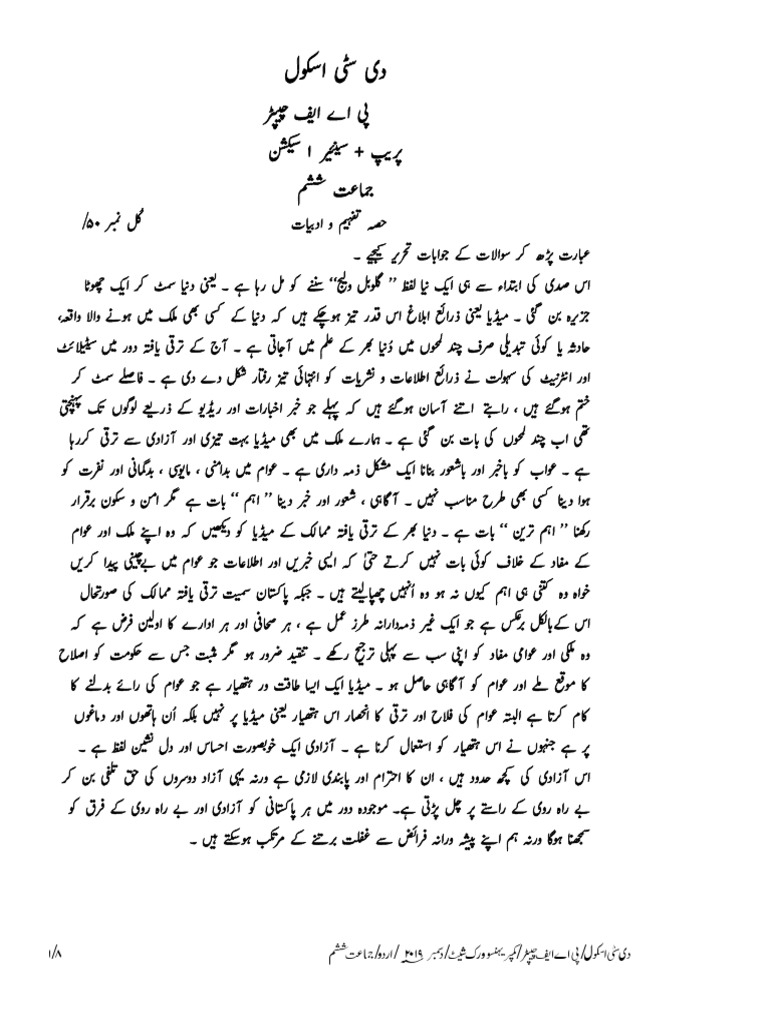 دی سٹی اسکول
پی اے ایف چیپٹر
پریپ + سینئیر ۱ سیکشن
جماعت ششم
حصہ تفہیم و ادبیات کُل نمبر ۵۰/
عبارت پڑھ کر سوالات کے جوابات تحریر کیجیے ۔
اس صدی کی ابتداء سے ہی ایک نیا لفظ ’’ گلوبل ولیج‘‘ سننے کو مل رہا ہے ۔ یعنی دنیا سمٹ کر ایک چھوٹا
جزیرہ بن گئی ۔ میڈیا یعنی ذرائع ابلاغ اس قدر تیز ہوچکے ہیں کہ دنیا کے کسی بھی ملک میں ہونے والا واقعہ،
حادثہ یا کوئی تبدیلی صرف چند لمحوں میں دُنیا بھر کے علم میں آجاتی ہے ۔ آج کے ترقی یافتہ دور میں سیٹیلائٹ
اور انٹرنیٹ کی سہولت نے ذرائع اطلاعات و نشریات کو انتہائی تیز رفتار شکل دے دی ہے ۔ فاصلے سمٹ کر
ختم ہوگئے ہیں ، رابطے اتنے آسان ہوگئے ہیں کہ پہلے جو خبر اخبارات اور ریڈیو کے ذریعے لوگوں تک پہنچتی
تھی اب چند لمحوں کی بات بن گئی ہے ۔ ہمارے ملک میں بھی میڈیا بہت تیزی اور آزادی سے ترقی کررہا
ہے ۔ عواب کو باخبر اور باشعور بنانا ایک مشکل ذمہ داری ہے ۔ عوام میں بدامنی ، مایوسی ، بدگمانی اور نفرت کو
ہوا دینا کسی بھی طرح مناسب نہیں ۔ آگاہی ، شعور اور خبر دینا ’’ اہم ‘‘ بات ہے مگر امن و سکون برقرار
رکھنا ’’ اہم ترین ‘‘ بات ہے ۔ دنیا بھر کے ترقی یافتہ ممالک کے میڈیا کو دیکھیں کہ وہ اپنے ملک اور عوام
کے مفاد کے خلاف کوئی بات نہیں کرتے حتیٰ کہ ایسی خبریں اور اطلاعات جو عوام میں بےچینی پیدا کریں
خواہ وہ کتنی ہی اہم کیوں نہ ہو وہ اُنہیں چھپالیتے ہیں ۔ جبکہ پاکستان سمیت ترقی یافتہ ممالک کی صورتحال
اس کےبالکل برعکس ہے جو ایک غیر ذمہ‌دارانہ طرز عمل ہے ، ہر صحافی اور ہر ادارے کا اولین فرض ہے کہ
وہ ملکی اور عوامی مفاد کو اپنی سب سے پہلی ترجیح رکھے ۔ تنقید ضرور ہو مگر مثبت جس سے حکومت کو اصلاح
کا موقع ملے اور عوام کو آگاہی حاصل ہو ۔ میڈیا ایک ایسا طاقت ور ہتھیار ہے جو عوام کی رائے بدلنے کا
کام کرتا ہے البتہ عوام کی فلاح اور ترقی کا انحصار اس ہتھیار یعنی میڈیا پر نہیں بلکہ اُن ہاتھوں اور دماغوں
پر ہے جنہوں نے اس ہتھیار کو استعمال کرنا ہے ۔ آزادی ایک خوبصورت احساس اور دل نشین لفظ ہے ۔
اس آزادی کی کچھ حدود ہیں ، ان کا احترام اور پابندی لازمی ہے ورنہ یہی آزاد دوسروں کی حق تلفی بن کر
بے راہ روی کے راستے پر چل پڑتی ہے۔ موجودہ دور میں ہر پاکستانی کو آزادی اور بے راہ روی کے فرق کو
سمجھنا ہوگا ورنہ ہم اپنے پیشہ ورانہ فرائض سے غفلت برتنے کے مرتکب ہوسکتے ہیں ۔
دی سٹی اسکول/پی اے ایف چیپٹر/کمپریہنسو ورک شیٹ/دسمبر ۲۰۱۹/اردو/جماعت ششم ۱/۸